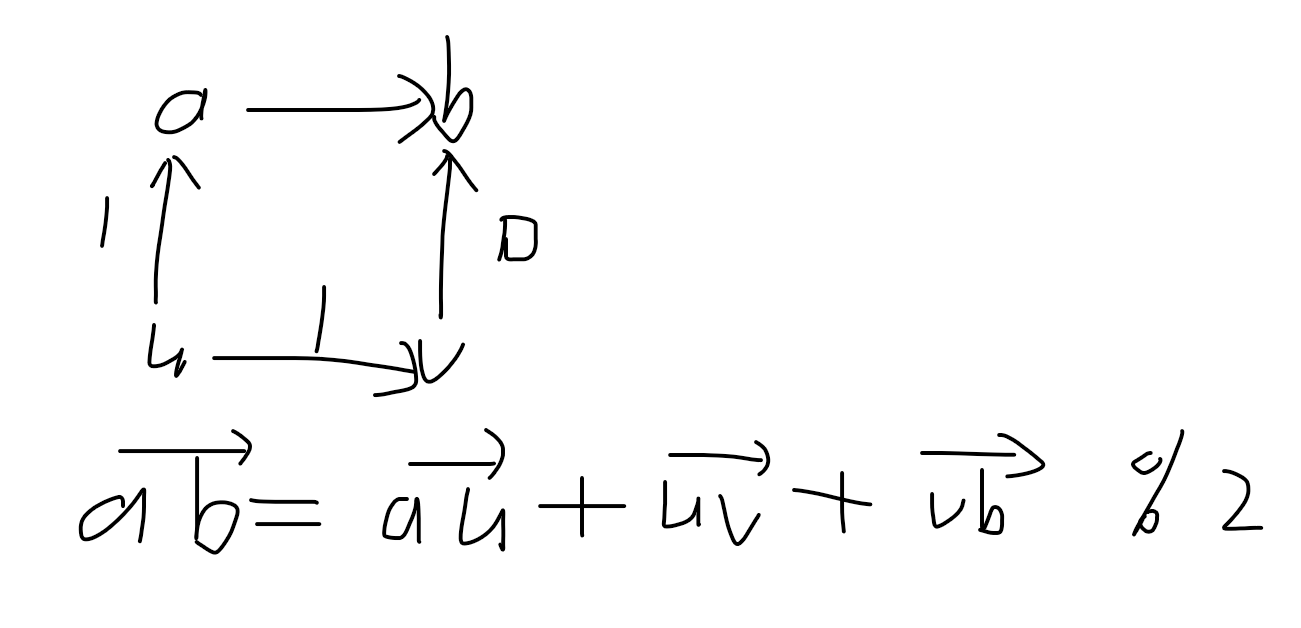 a → b
1 0
u 1 → v
\overrightarrow{ab} = \overrightarrow{au} + \overrightarrow{uv} + \overrightarrow{vb} % 2